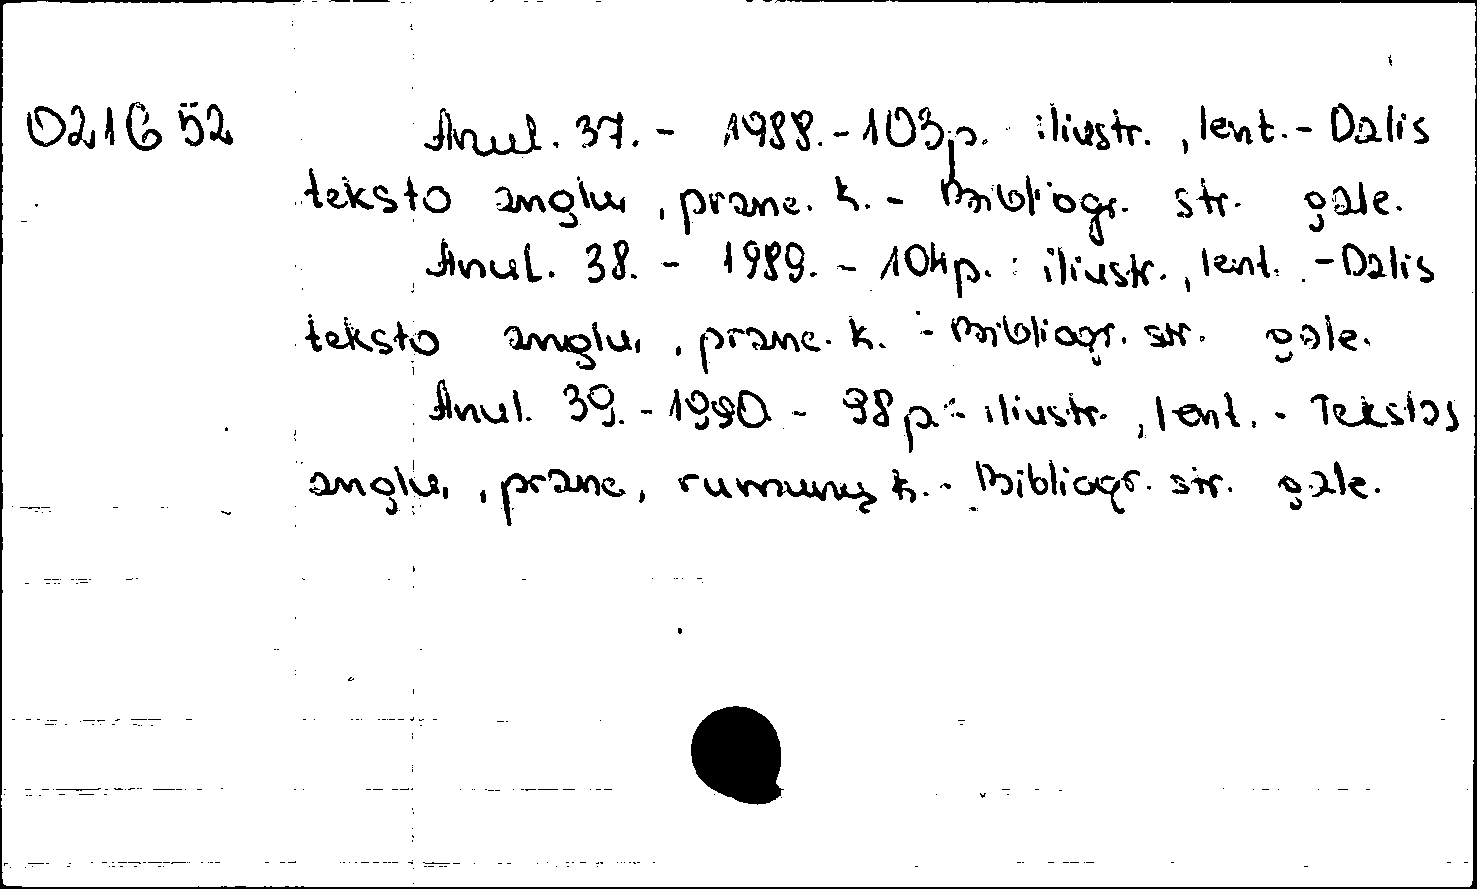 021652 Anul. 37. - 1988. - 103p. iliustr., lent. - Dalis
teksto anglų, pranc. k. - Bibliogr. str. gale.
Anul. 38. - 1989. - 104p. : iliustr., lent. - Dalis
teksto anglų, pranc. k. - Bibliogr. str. gale.
Anul. 39. - 1990. - 98p. : iliustr., lent. - Tekstas
anglų, pranc, rumunų k. - Bibliogr. str. gale.